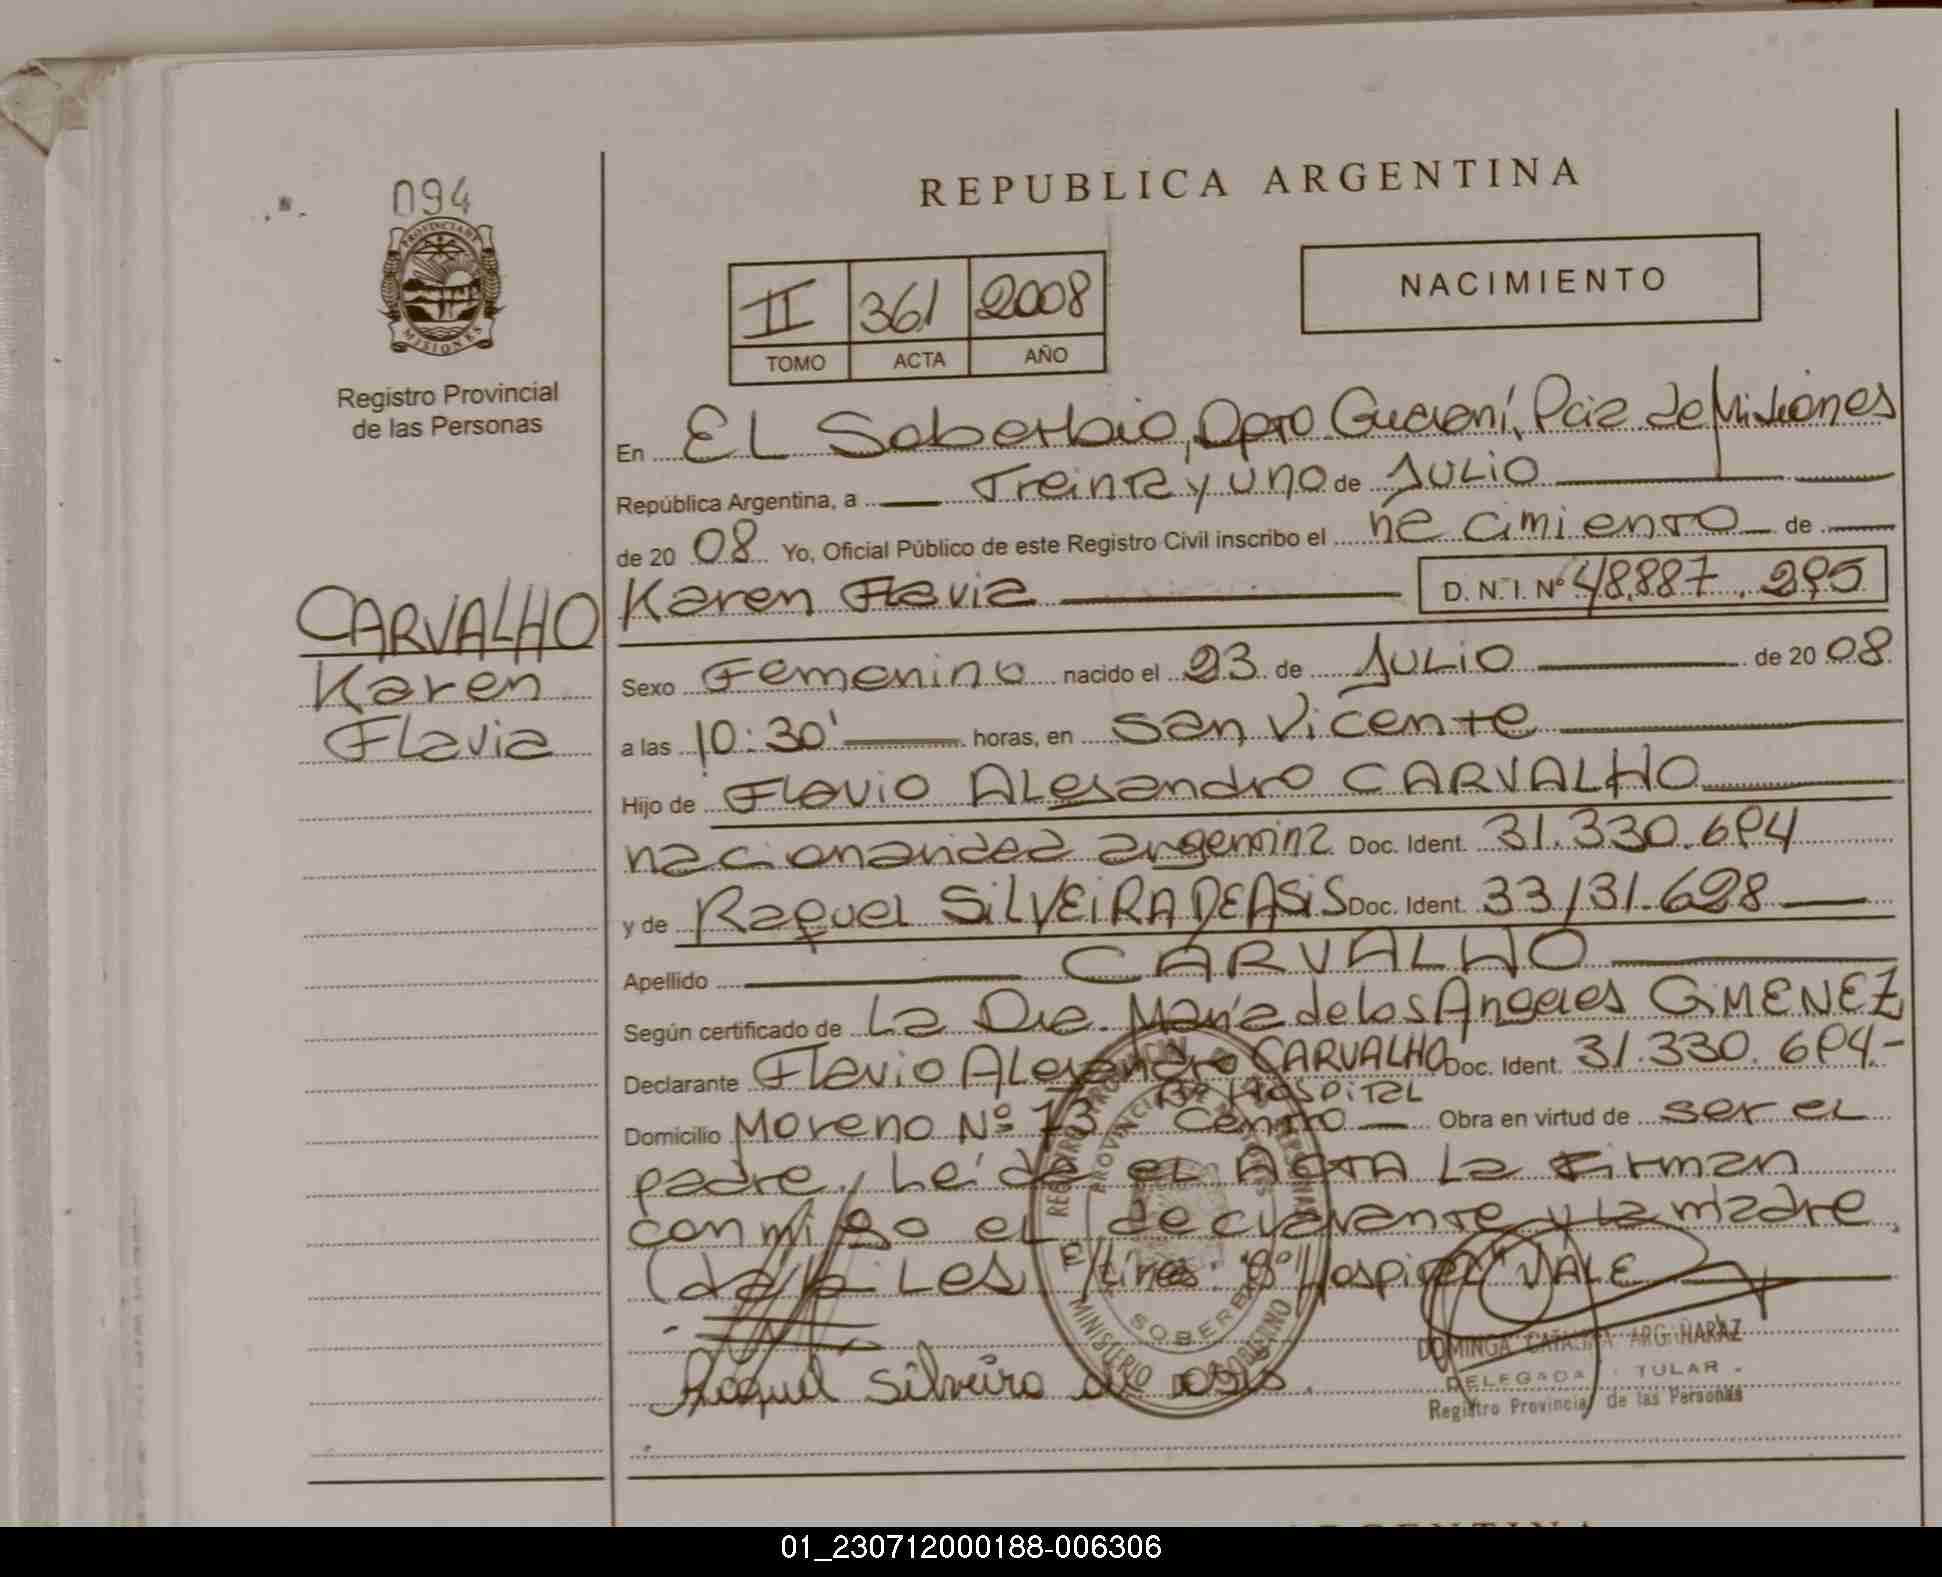 094
PROVINCIA DE
MISIONES
Registro Provincial
de las Personas
CARVALHO
Karen
Flavia
REPUBLICA ARGENTINA
II 361 2008
TOMO ACTA AÑO
NACIMIENTO
En EL Soberbio, Dpto Guaraní, Pcia de Misiones
República Argentina, a Treinta y uno de JULIO
de 20 08 Yo, Oficial Público de este Registro Civil inscribo el nacimiento de
Karen Flavia D. N. I. Nº 48.887.295
Sexo Femenino nacido el 23 de JULIO de 20 08
a las 10:30' horas, en San Vicente
Hijo de Flavio ALejandro CARVALHO
argentina Doc. Ident. 31.330.694
y de Raquel SiLVEiRA DE ASiS Doc. Ident. 33/31.628
Apellido CARVALHO
Según certificado de La Dra. María de los Angeles GiMENEZ
Declarante Flavio ALejandro CARVALHO Doc. Ident. 31.330.694.-
Bº HOSPiTAL
Domicilio Moreno Nº 73 Centro Obra en virtud de ser eL
padre, Leída eL ACTA La Firman
conmigo eL declarante y La madre.
E/Lines: "Bº Hospital" VALE
Raquel Silveira de Asis
REGISTRO PROVINCIAL DE LAS PERSONAS
MINISTERIO DE GOBIERNO
SOBERBIO
DOMINGA CATALINA ARGIÑARAZ
DELEGADA TITULAR
Registro Provincial de las Personas
ARGENTINA
01_230712000188-006306